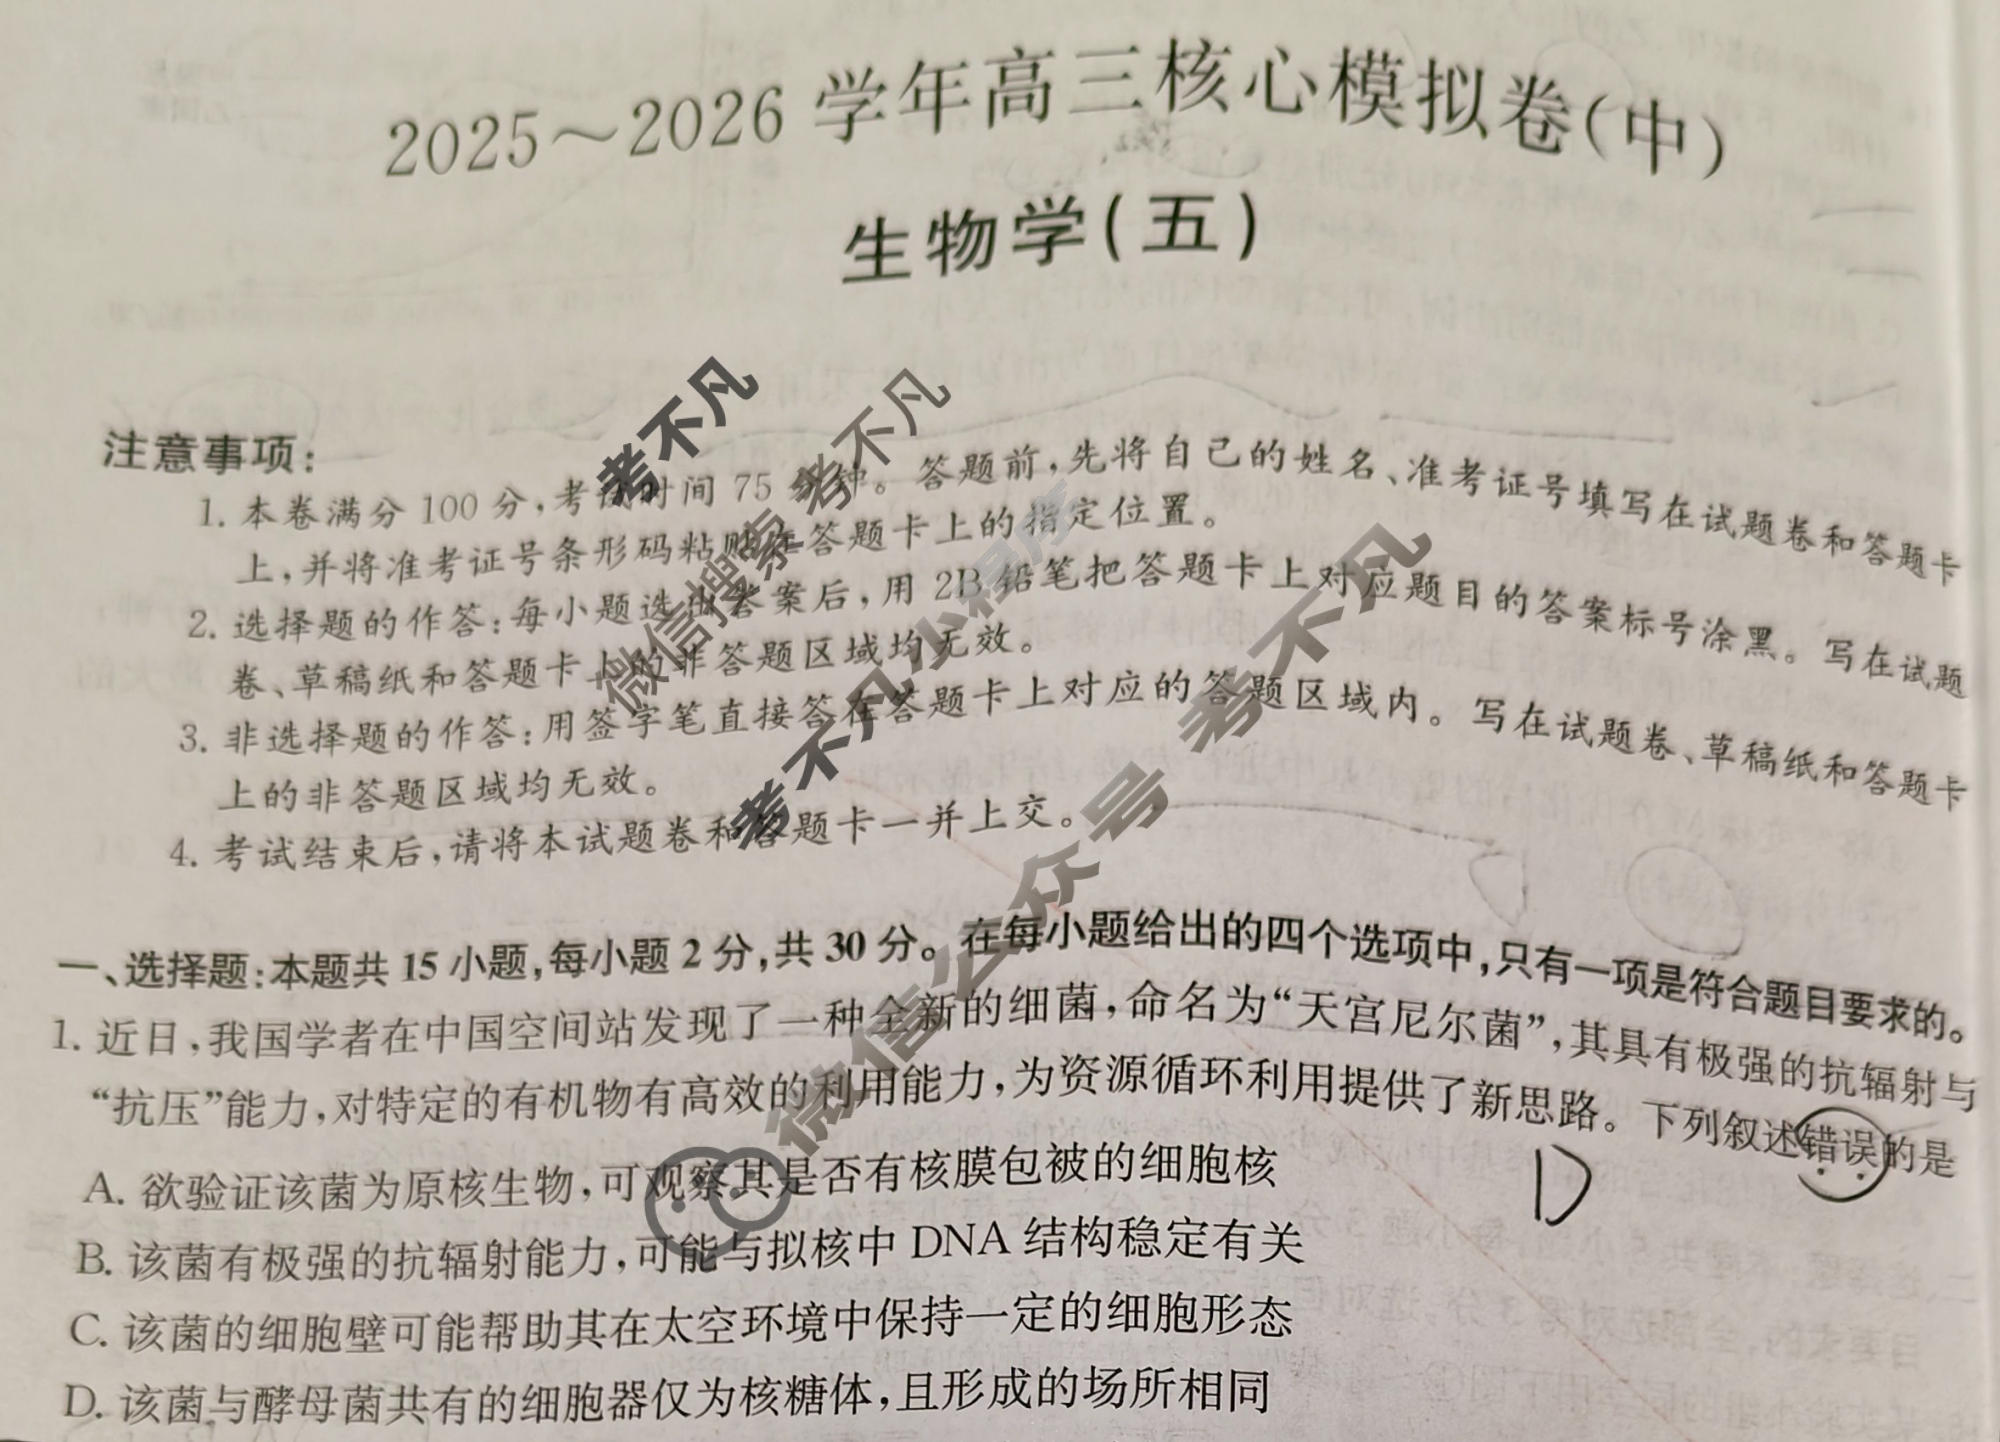 2025～2026学年高三核心模拟卷(中)
生物学(五)
注意事项：
1. 本卷满分100分，考试时间75分钟。答题前，先将自己的姓名、准考证号填写在试题卷和答题卡
上，并将准考证号条形码粘贴在答题卡上的指定位置。
2. 选择题的作答：每小题选出答案后，用2B铅笔把答题卡上对应题目的答案标号涂黑。写在试题
卷、草稿纸和答题卡上的非答题区域均无效。
3. 非选择题的作答：用签字笔直接答在答题卡上对应的答题区域内。写在试题卷、草稿纸和答题卡
上的非答题区域均无效。
4. 考试结束后，请将本试题卷和答题卡一并上交。
一、选择题：本题共15小题，每小题2分，共30分。在每小题给出的四个选项中，只有一项是符合题目要求的。
1. 近日，我国学者在中国空间站发现了一种全新的细菌，命名为“天宫尼尔菌”，其具有极强的抗辐射与
“抗压”能力，对特定的有机物有高效的利用能力，为资源循环利用提供了新思路。下列叙述错误的是
D
A. 欲验证该菌为原核生物，可观察其是否有核膜包被的细胞核
B. 该菌有极强的抗辐射能力，可能与拟核中DNA结构稳定有关
C. 该菌的细胞壁可能帮助其在太空环境中保持一定的细胞形态
D. 该菌与酵母菌共有的细胞器仅为核糖体，且形成的场所相同
考不凡
微信搜索 考不凡
考不凡小程序
微信公众号 考不凡